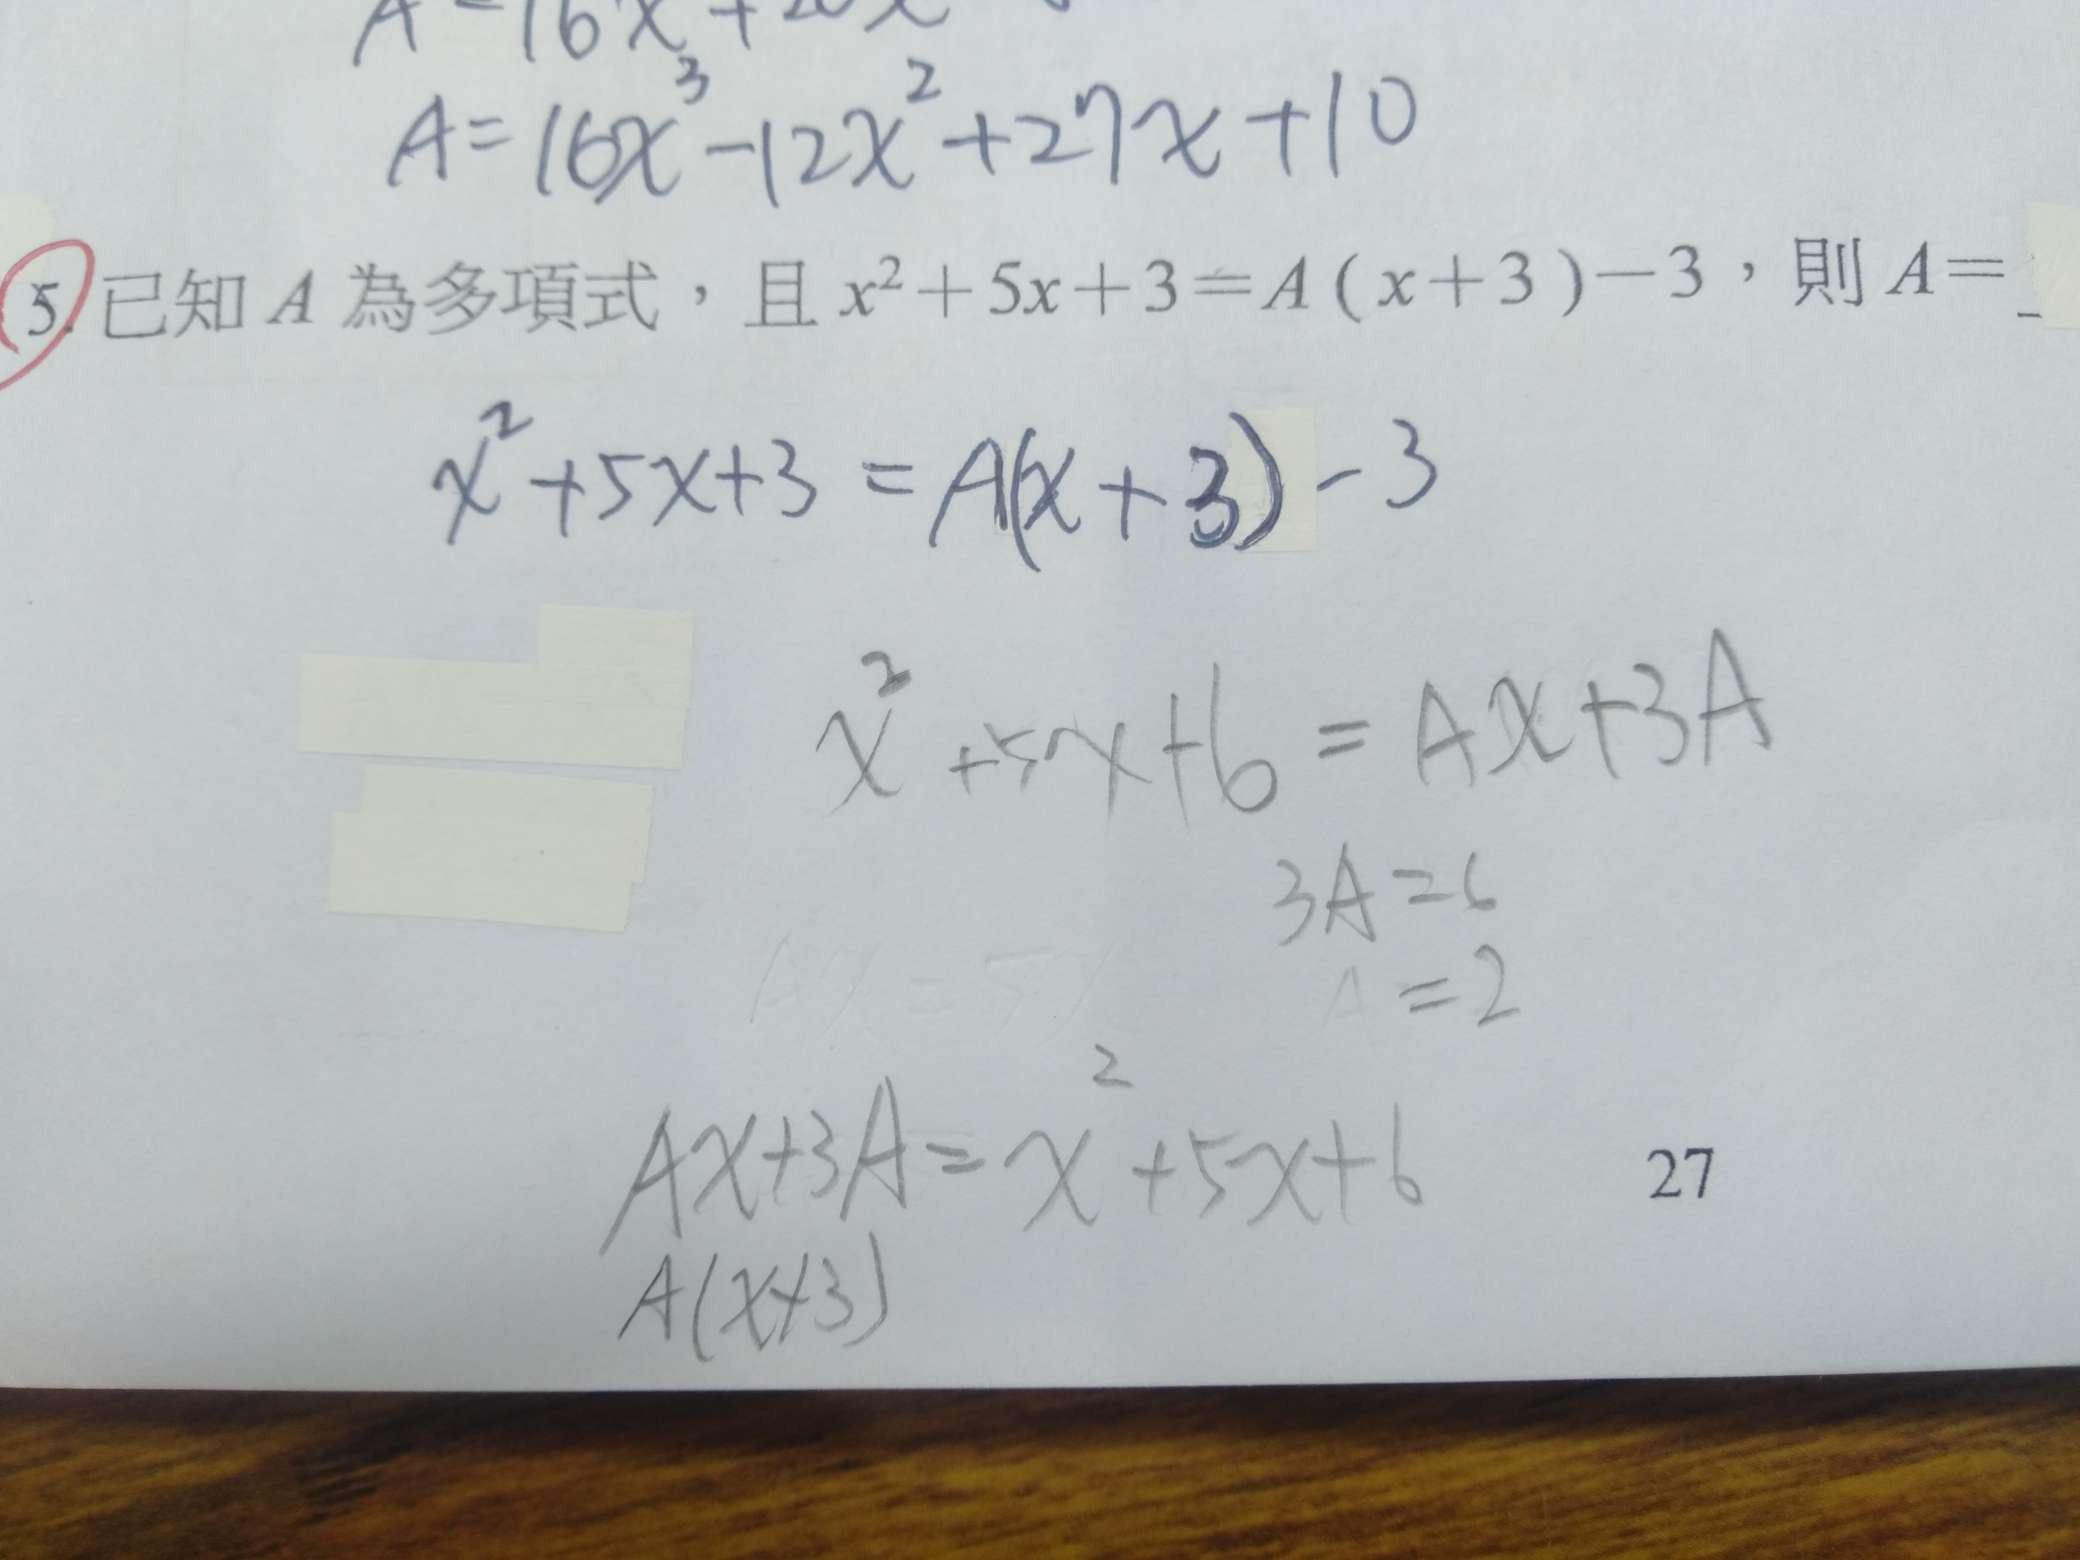 A=16x
A=16x³-12x²+27x+10
5. 已知 A 為多項式，且 x²+5x+3=A(x+3)-3，則 A=
x²+5x+3=A(x+3)-3
x²+5x+6=Ax+3A
3A=6
A=2
Ax=5x
Ax+3A=x²+5x+6
A(x+3)
27